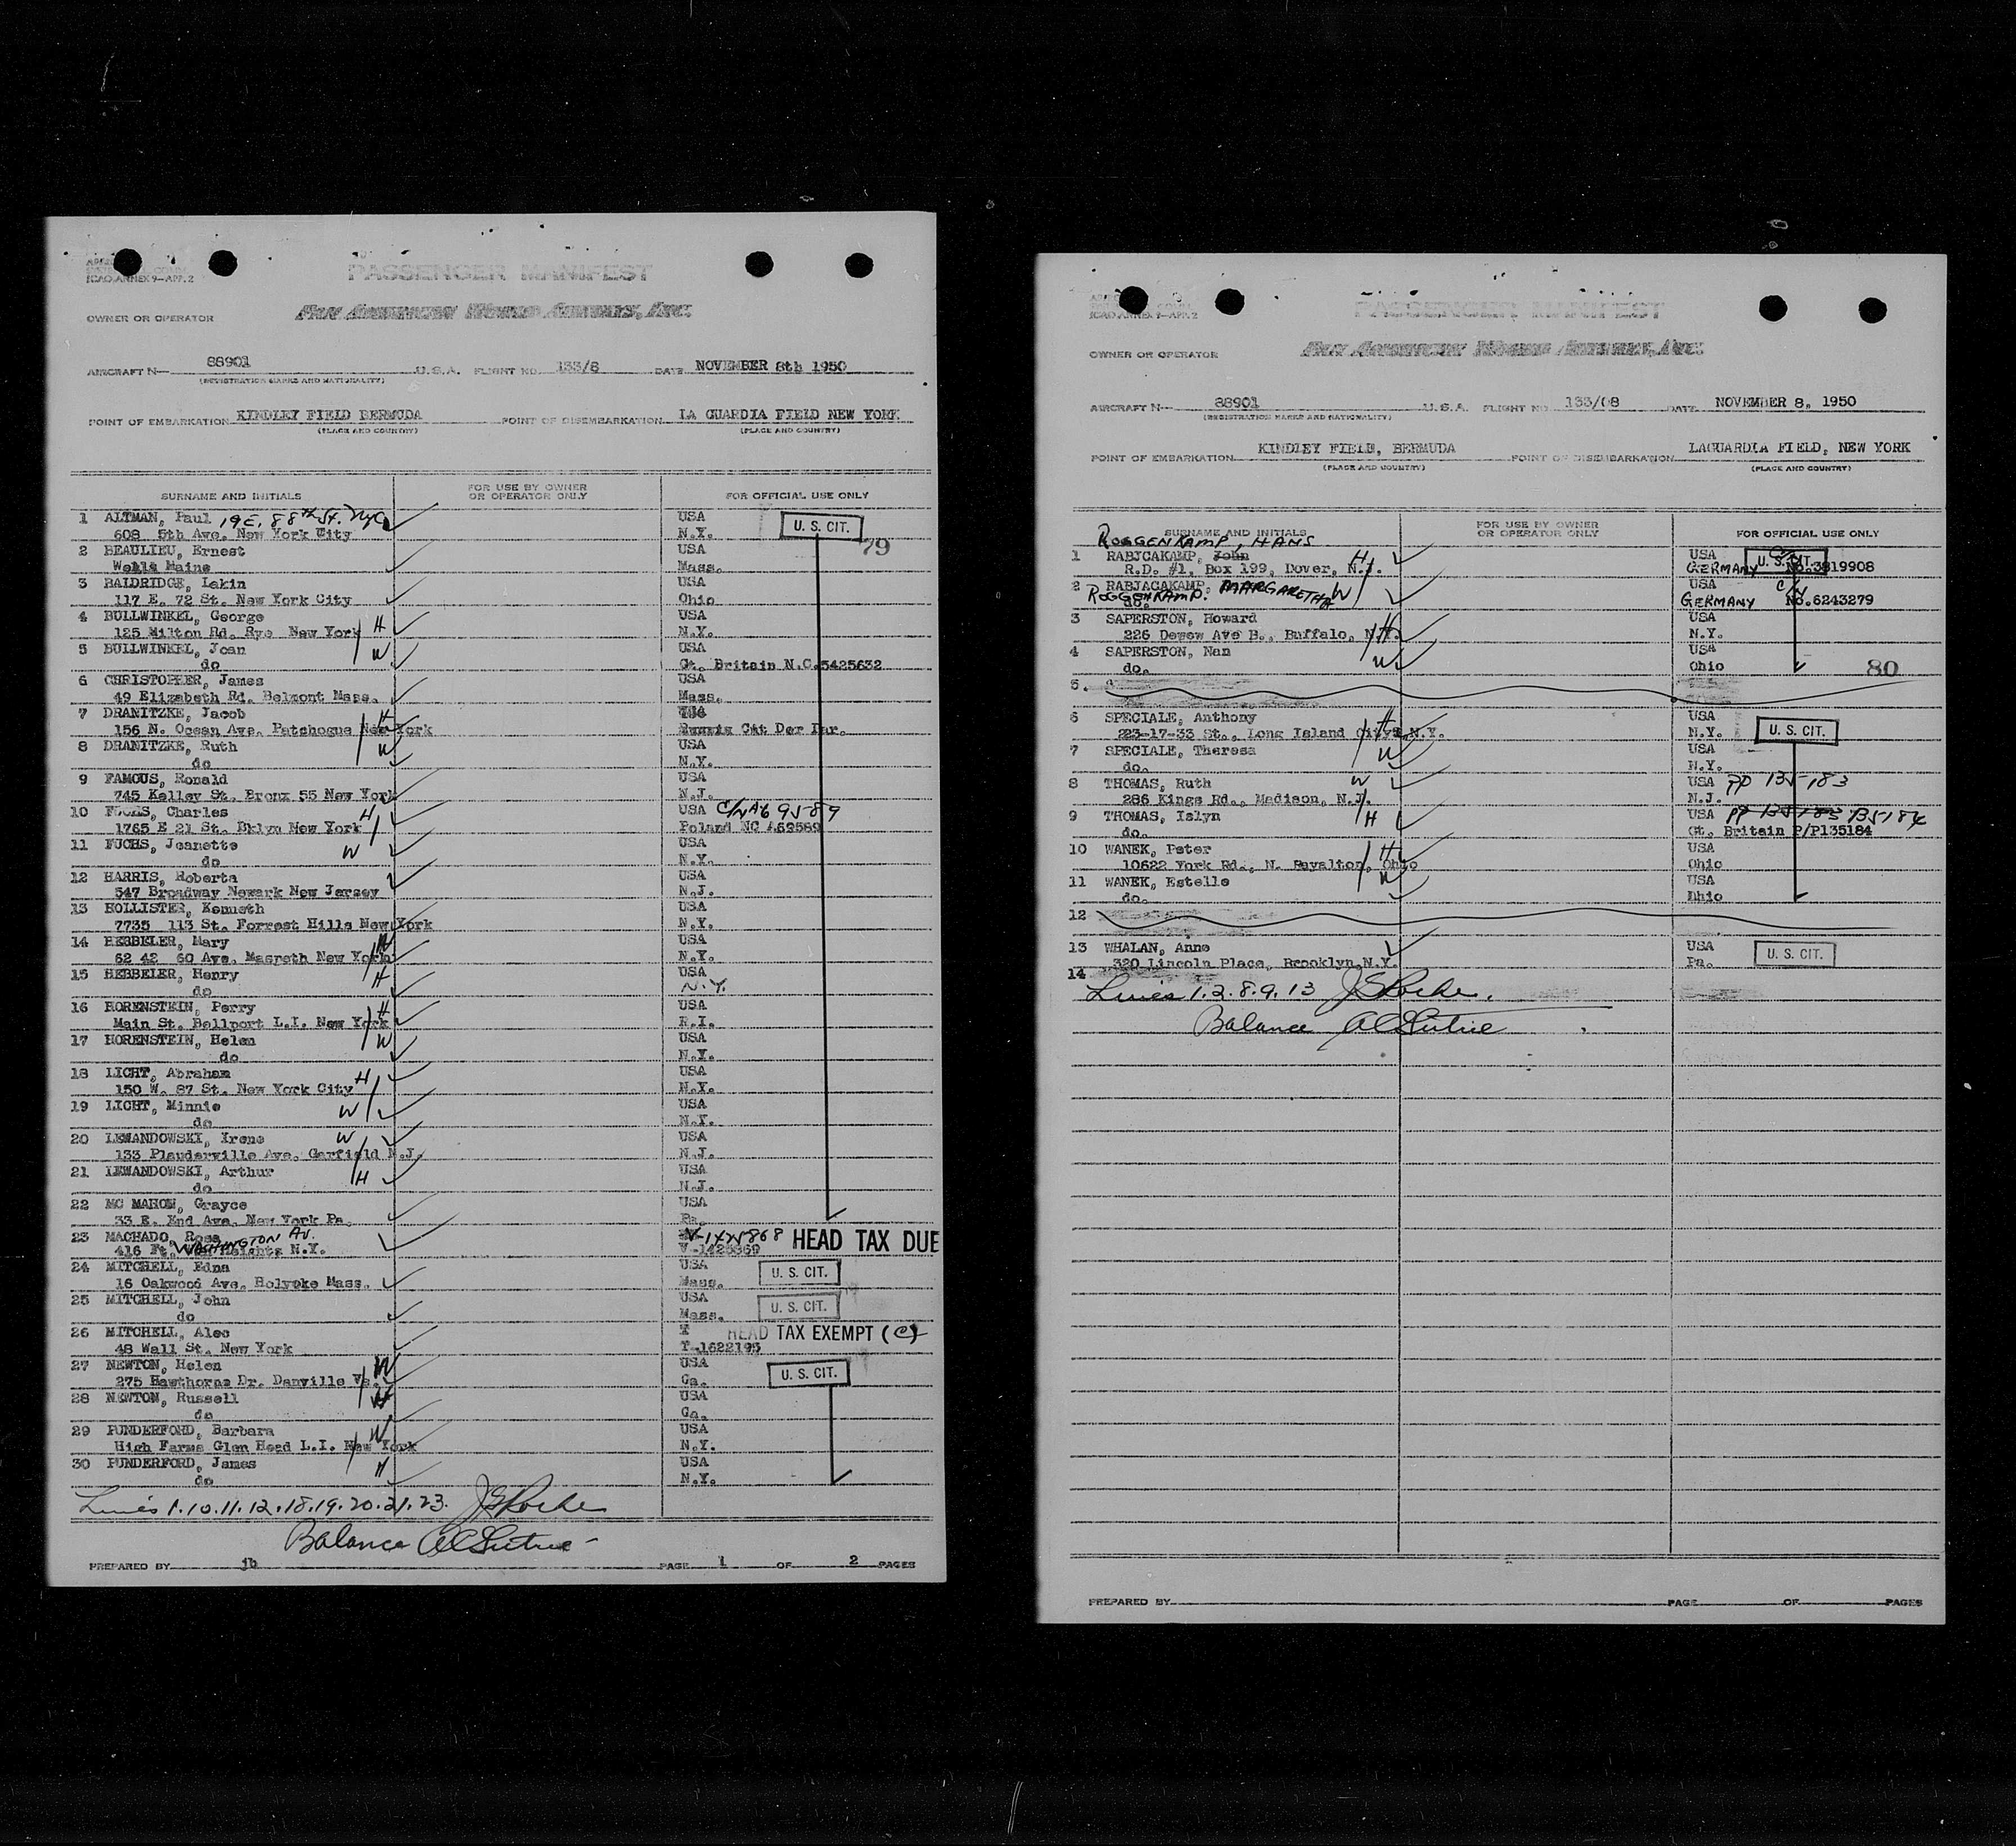 ICAO ANNEX 9-APP. 2
PASSENGER MANIFEST
OWNER OR OPERATOR Pan American World Airways, Inc.
AIRCRAFT N— 88901 U.S.A. FLIGHT NO. 133/8 DATE NOVEMBER 8th 1950
(REGISTRATION MARKS AND NATIONALITY)
POINT OF EMBARKATION KINDLEY FIELD BERMUDA POINT OF DISEMBARKATION LA GUARDIA FIELD NEW YORK
(PLACE AND COUNTRY) (PLACE AND COUNTRY)
SURNAME AND INITIALS FOR USE BY OWNER OR OPERATOR ONLY FOR OFFICIAL USE ONLY
1 ALTMAN, Paul 19 E. 88th St. NYC USA U. S. CIT.
608 5th Ave. New York City N.Y.
2 BEAULIEU, Ernest USA 79
Wells Maine Mass.
3 BALDRIDGE, Lakin USA
117 E. 72 St. New York City Ohio
4 BULLWINKEL, George USA
125 Milton Rd. Rye New York H N.Y.
5 BULLWINKEL, Joan W USA
do Gt. Britain N.C. 5425632
6 CHRISTOPHER, James USA
49 Elizabeth Rd. Belmont Mass. Mass.
7 DRANITZKE, Jacob H USA
156 N. Ocean Ave. Patchogue New York Russia Cit Der Par.
8 DRANITZKE, Ruth W USA
do N.Y.
9 FAMOUS, Ronald USA
745 Kelley St. Bronx 55 New York N.J.
10 FUCHS, Charles H USA C/N A69589
1765 E 21 St. Bklyn New York Poland NC A69589
11 FUCHS, Jeanette W USA
do N.Y.
12 HARRIS, Roberta USA
547 Broadway Newark New Jersey N.J.
13 HOLLISTER, Kenneth USA
7735 113 St. Forrest Hills New York N.Y.
14 HEBBELER, Mary W USA
62 42 60 Ave. Maspeth New York N.Y.
15 HEBBELER, Henry H USA
do N.Y.
16 HORENSTEIN, Perry H USA
Main St. Bellport L.I. New York R.I.
17 HORENSTEIN, Helen W USA
do N.Y.
18 LICHT, Abraham H USA
150 W. 87 St. New York City N.Y.
19 LICHT, Minnie W USA
do N.Y.
20 LEWANDOWSKI, Irene W USA
133 Plauderville Ave. Garfield N.J. N.J.
21 LEWANDOWSKI, Arthur H USA
do N.J.
22 MC MAHON, Grayce USA
33 E. End Ave. New York Pa. Pa.
23 MACHADO, Rosa V-1425868 HEAD TAX DUE
416 Ft. WASHINGTON AV. Heights N.Y. V-1425869
24 MITCHELL, Edna USA U. S. CIT.
16 Oakwood Ave. Holyoke Mass. Mass.
25 MITCHELL, John USA U. S. CIT.
do Mass.
26 MITCHELL, Alec T HEAD TAX EXEMPT (C)
48 Wall St. New York T-1622195
27 NEWTON, Helen W USA U. S. CIT.
275 Hawthorne Dr. Danville Va. Ga.
28 NEWTON, Russell H USA
do Ga.
29 PUNDERFORD, Barbara W USA
High Farms Glen Head L.I. New York N.Y.
30 PUNDERFORD, James H USA
do N.Y.
Lines 1.10.11.12.18.19.20.21.23.
Balance
PREPARED BY jb PAGE 1 OF 2 PAGES
ICAO ANNEX 9-APP. 2
PASSENGER MANIFEST
OWNER OR OPERATOR Pan American World Airways, Inc.
AIRCRAFT N— 88901 U.S.A. FLIGHT NO. 133/08 DATE NOVEMBER 8, 1950
(REGISTRATION MARKS AND NATIONALITY)
POINT OF EMBARKATION KINDLEY FIELD, BERMUDA POINT OF DISEMBARKATION LAGUARDIA FIELD, NEW YORK
(PLACE AND COUNTRY) (PLACE AND COUNTRY)
SURNAME AND INITIALS FOR USE BY OWNER OR OPERATOR ONLY FOR OFFICIAL USE ONLY
ROGGENKAMP, HANS
1 RABJCAKAMP, John H USA C/N U. S. CIT.
R.D. #1, Box 199, Dover, N.J. GERMANY No. 3819908
2 RABJACAKAMP, MARGARETHA W USA C/N
ROGGENKAMP. do. GERMANY No. 6243279
3 SAPERSTON, Howard USA
226 Dewow Ave B., Buffalo, N.Y. H N.Y.
4 SAPERSTON, Nan USA
do. W Ohio 80
5.
6 SPECIALE, Anthony H USA U. S. CIT.
223-17-33 St., Long Island City, N.Y. N.Y.
7 SPECIALE, Theresa W USA
do. N.Y.
8 THOMAS, Ruth W USA PP 135183
286 Kings Rd., Madison, N.J. N.J.
9 THOMAS, Islyn H USA PP 135183 135184
do. Gt. Britain P/P135184
10 WANEK, Peter H USA
10622 York Rd., N. Royalton, Ohio Ohio
11 WANEK, Estelle W USA
do. Ohio
12
13 WHALAN, Anne USA U. S. CIT.
320 Lincoln Place, Brooklyn N.Y. Pa.
14
Lines 1.2.8.9.13
Balance
PREPARED BY PAGE OF PAGES